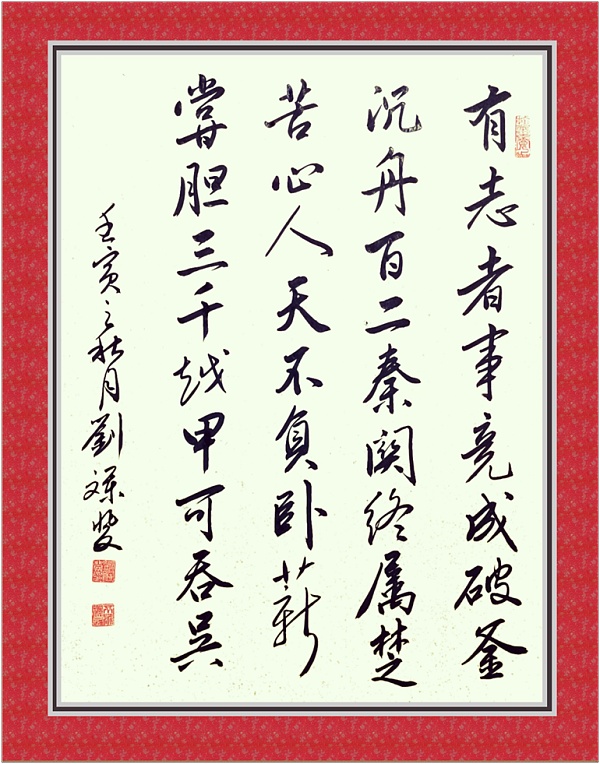 有志者事竟成破釜
沉舟百二秦関终属楚
苦心人天不負卧薪
嘗胆三千越甲可吞吴
壬寅之秋月劉